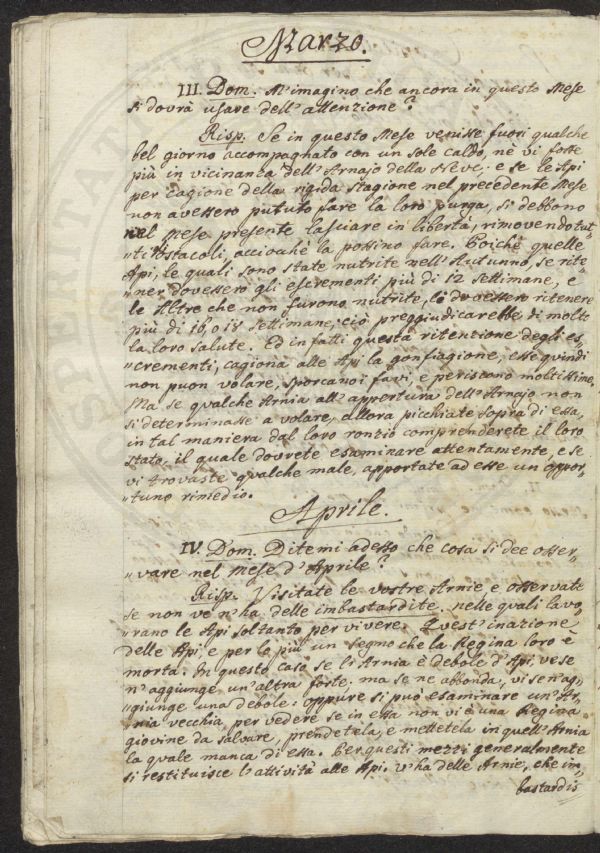 Marzo.
III. Dom. M'imagino che ancora in questo Mese
si dovrà usare dell'attenzione?
Risp. Se in questo Mese venisse fuori qualche
bel giorno accompagnato con un sole caldo, nè vi fosse
più in vicinanza dell'Arnajo della Neve; e se le Api
per cagione della rigida stagione nel precedente Mese
non avessero pututo fare la loro purga, si debbono
nel Mese presente lasciare in libertà, rimovendo tut-
"ti ostacoli, acciochè la possino fare. Poichè quelle
Api, le quali sono state nutrite nell'Autunno, se rite-
"ner dovessero gli escrementi più di 12 Settimane, e
le Altre che non furono nutrite, li dovessero ritenere
più di 16, o 18 Settimane, ciò preggiudicarebbe di molto
la loro salute. Ed in fatti questa ritentione degli es-
"crementi, cagiona alle Api la gonfiagione, esse quindi
non puon volare, sporcano i favi, e periscono moltissime.
Ma se qualche Arnia all'appertura dell'Arnajo non
si determinasse a volare, allora picchiate sopra di essa,
in tal maniera dal loro ronzio comprenderete il loro
stato, il quale dovrete esaminare attentamente, e se
vi trovaste qualche male, apportate ad esse un oppor-
"tuno rimedio.
Aprile.
IV. Dom. Ditemi adesso che cosa si dee osser-
"vare nel Mese d'Aprile?
Risp. Visitate le vostre Arnie, e osservate
se non ve n'ha delle imbastardite, nelle quali lavo-
"rano le Api soltanto per vivere. Quest'inazione
delle Api e per lo più un segno che la Regina loro è
morta. In questo caso se l'Arnia è debole d'Api, ve se
n'aggiunge un'altra forte, ma se ne abbonda, vi se n'ag-
"giunge una debole: oppure si può esaminare un'Ar-
"nia vecchia, per vedere se in essa non vi è una Regina
giovine da salvare, prendetela, e mettetela in quell'Arnia
la quale manca di essa. Per questi mezzi generalmente
si restituisce l'attività alle Api. V'ha delle Arnie, che im-
bastardis